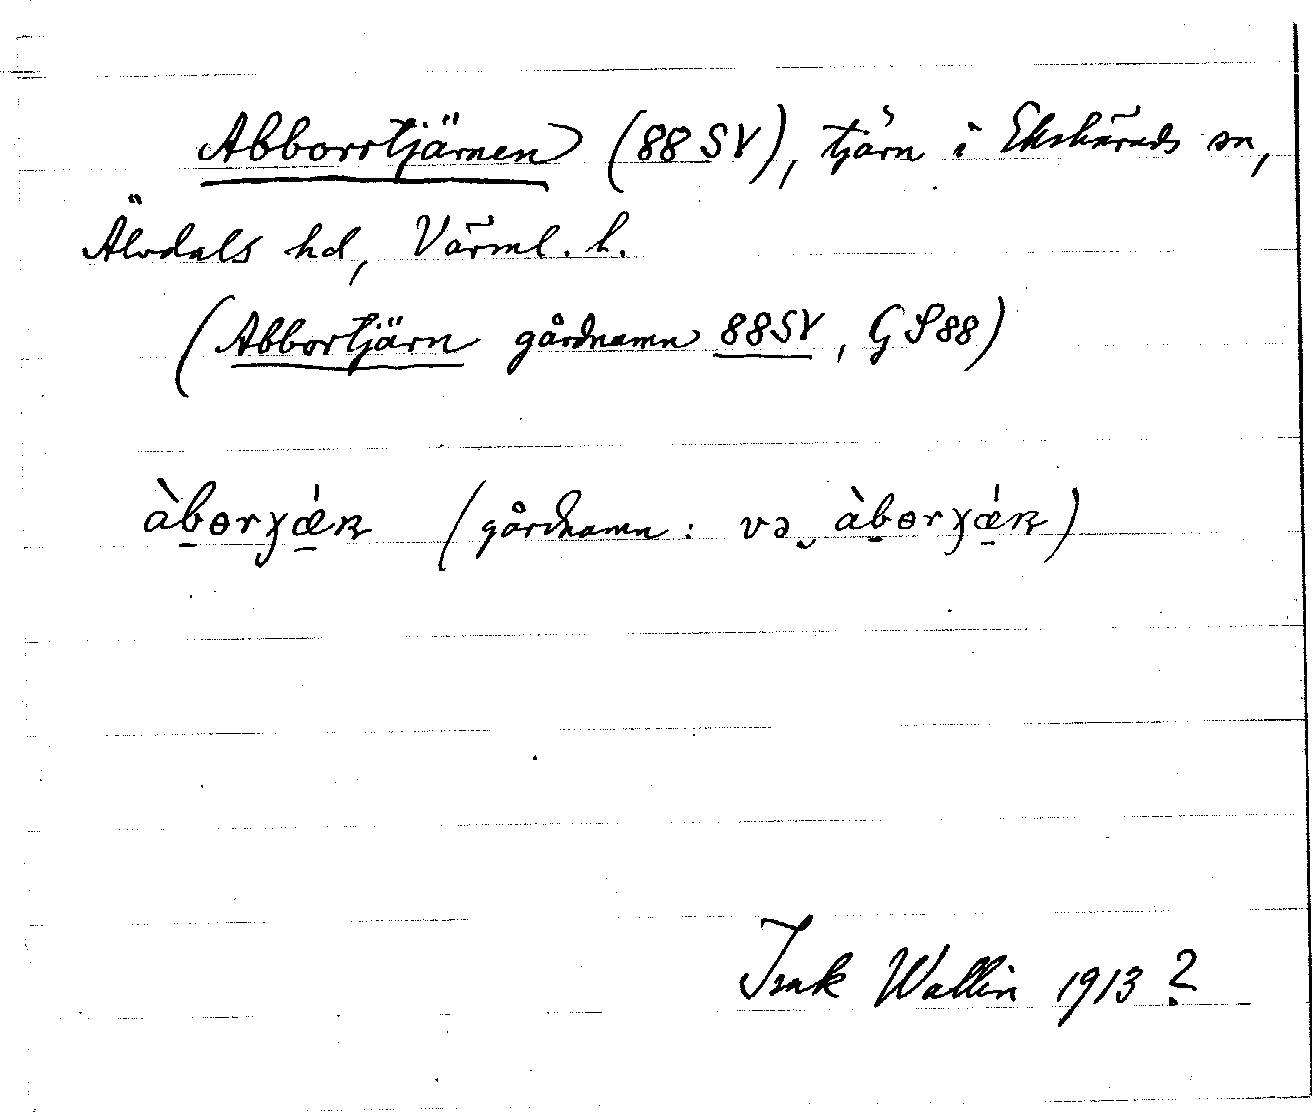 Abborrtjärnen (88 SV), tjärn i Ekshärads sn,
Älvdals hd, Värml. l.
(Abbortjärn gårdnamn 88SV, GS88)
àbɵrɣǽʀ (gårdnamn: və‿àbɵrɣǽʀ)
Isak Wallin 1913?